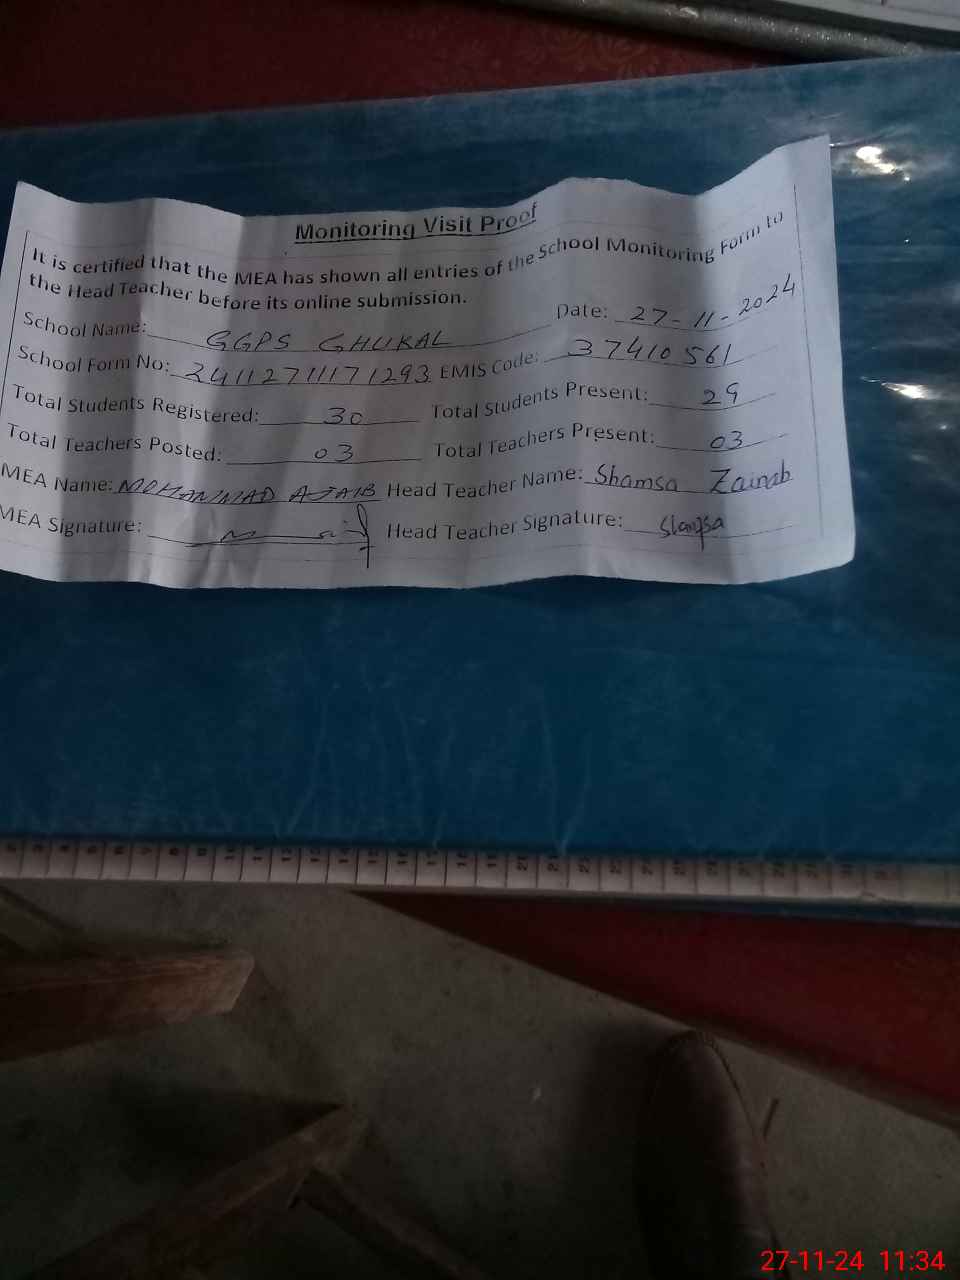 Monitoring Visit Proof
It is certified that the MEA has shown all entries of the School Monitoring Form to
the Head Teacher before its online submission.
School Name: GGPS GHUKAL Date: 27-11-2024
School Form No: 2411271117 1293 EMIS Code: 37410561
Total Students Registered: 30 Total Students Present: 29
Total Teachers Posted: 03 Total Teachers Present: 03
MEA Name: MOHAMMAD AJAIB Head Teacher Name: Shamsa Zainab
MEA Signature: Head Teacher Signature:
27-11-24 11:34